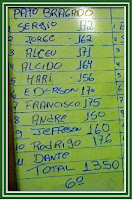 PATO BRAGADO
1 SERGIO 172
2 JORGE 162
3 ALCEU 171
4 ALCIDO 164
5 MARI 156
6 EDERSON 170
7 FRANCISCO 175
8 ANDRE 150
9 JEFFERSON 160
10 RODRIGO 176
11 DANTE
TOTAL 1350
6º